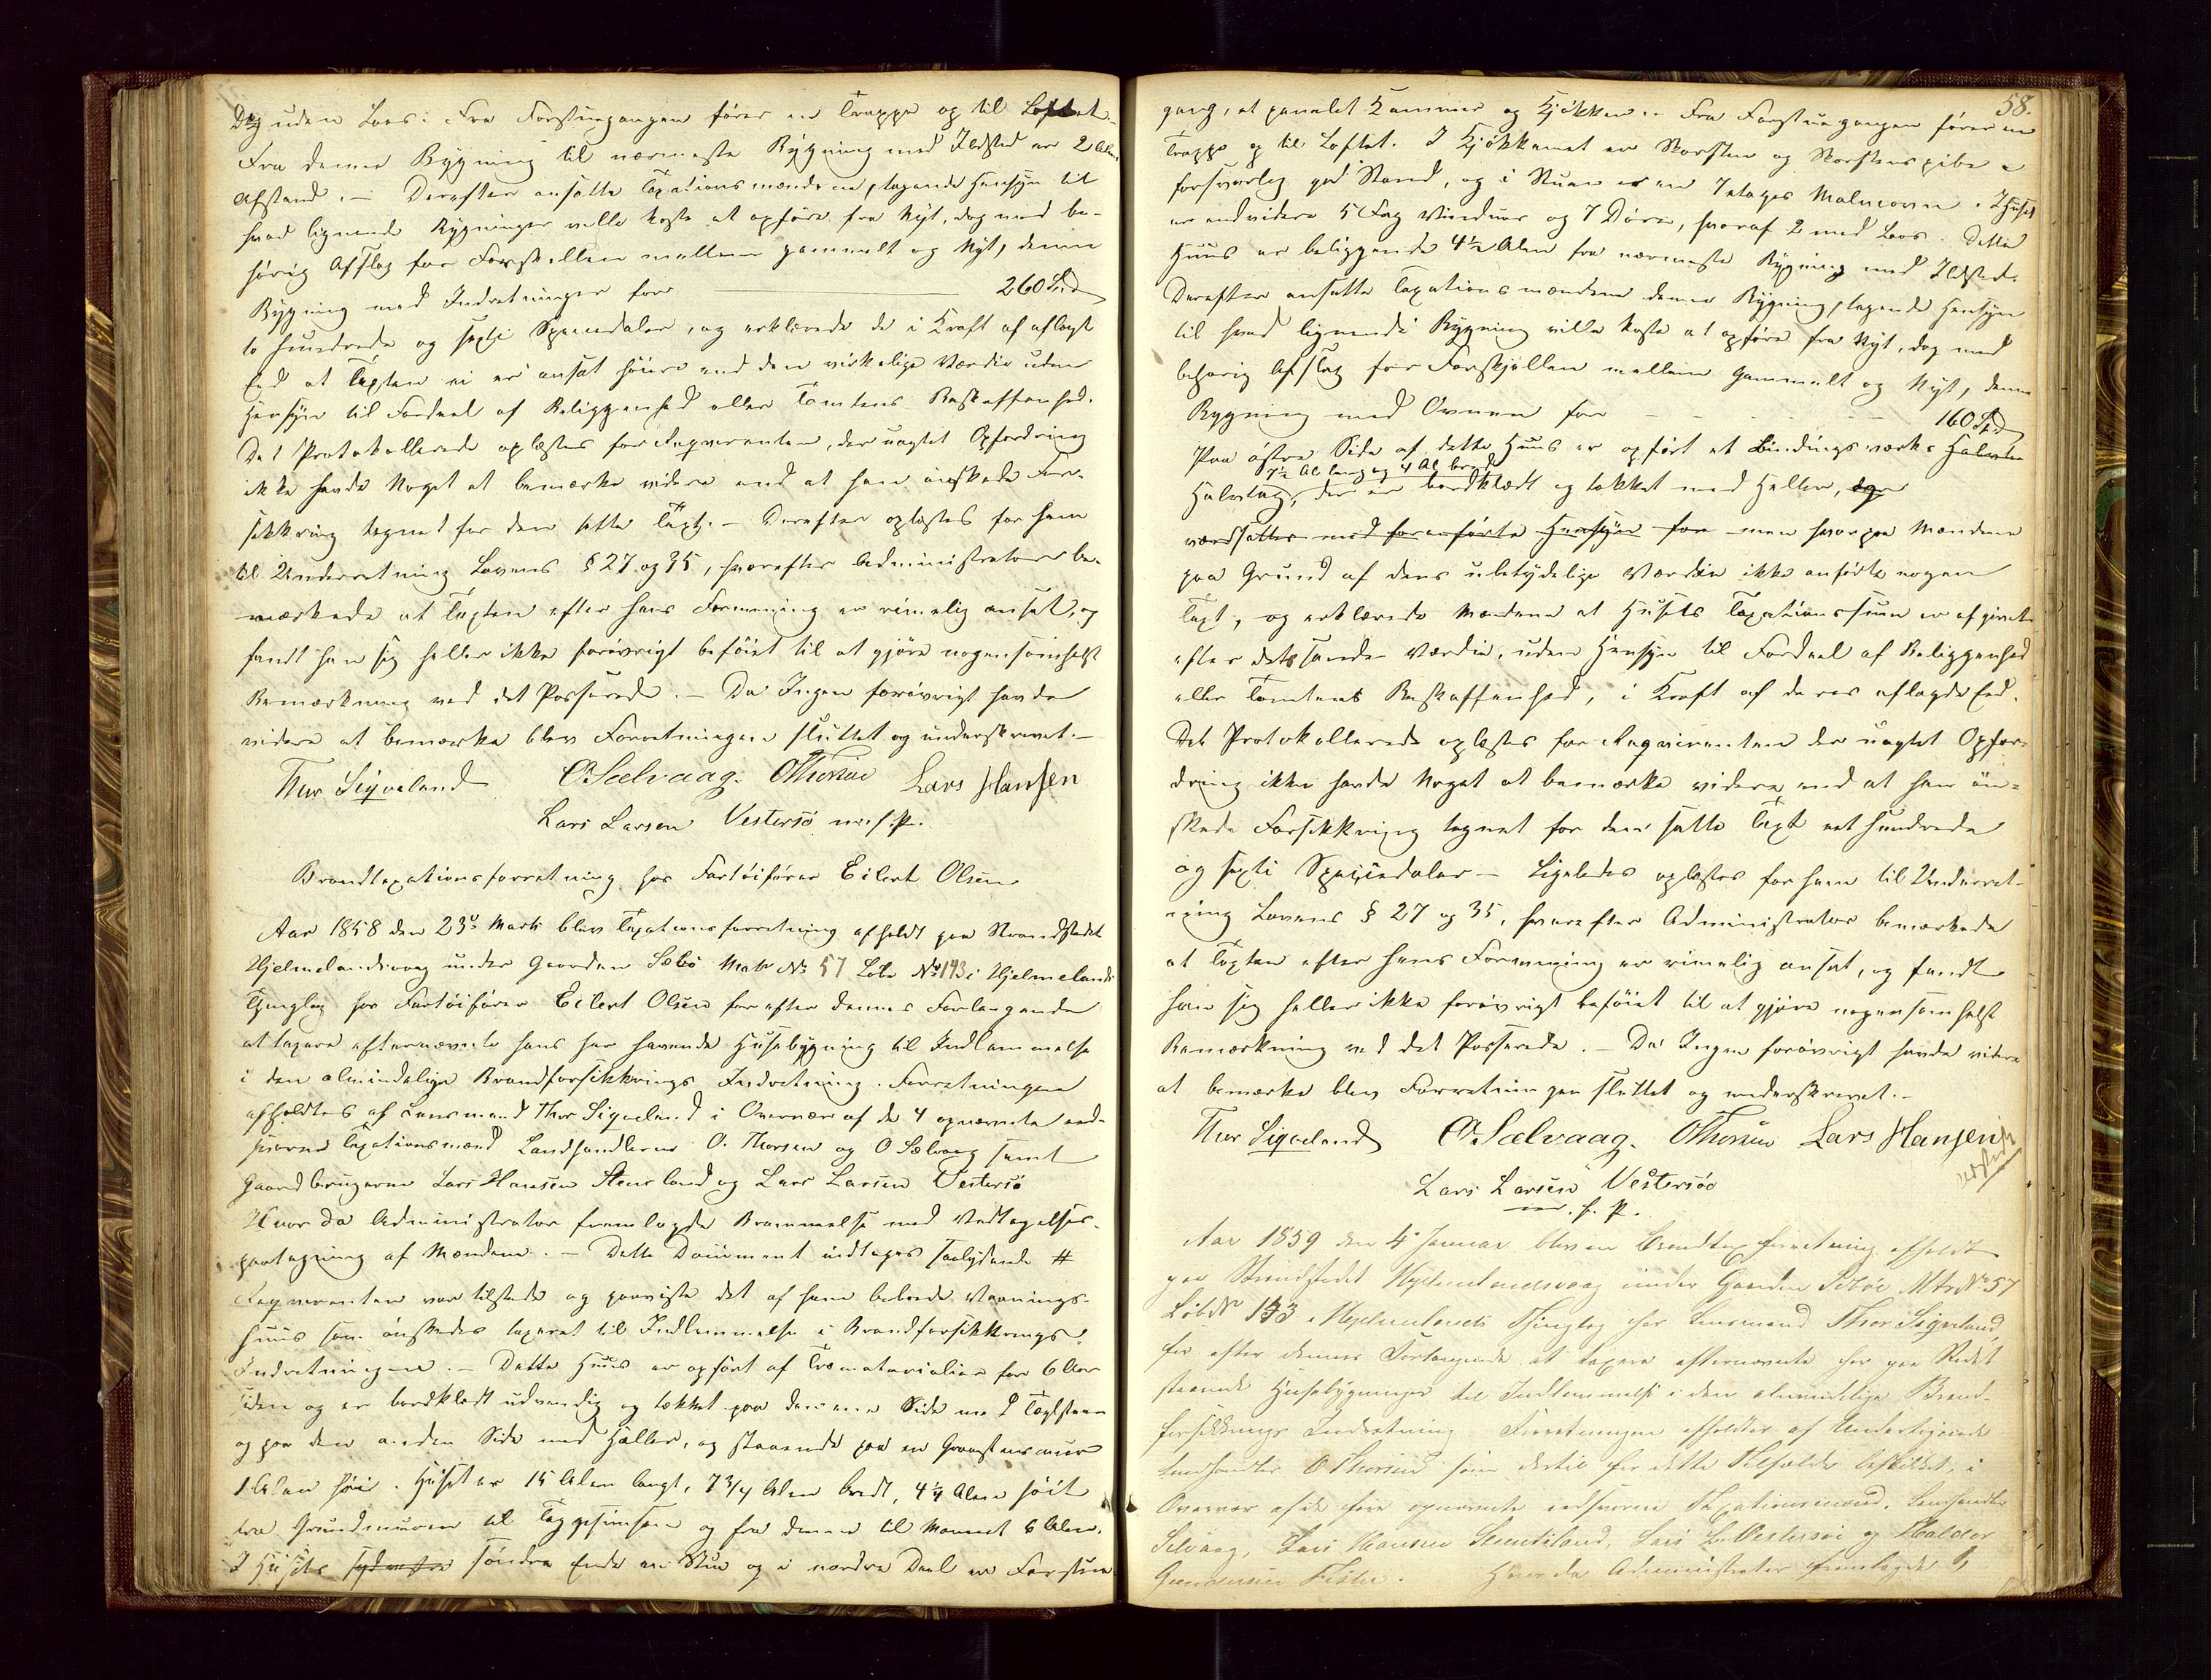 Dog uden Laas. Fra Forstuegangen fører en Trappe op til Loftet.
Fra denne Bygning til nærmeste Bygning med Ildsted er 2 Alen
Afstand. — Derefter ansatte Taxationsmændene, tagende Hensyn til
hvad lignende Bygninger ville koste at opføre fra Nyt, dog med be-
hørig Afslag for Forskellen mellem gammelt og Nyt, denne
Bygning med Indretninger for 260 Spd
to hundrede og sexti Speciedaler, og erklærede de i Kraft af aflagt
Eed at Taxten ei er ansat høiere end den virkelige Værdie uden
Hensyn til Fordeel af Beliggenhed eller Tomtens Beskaffenhed.
Det Protokollerede oplæstes for Reqvirenten, der uagtet Opfordring
ikke havde Noget at bemærke videre end at han ønskede For-
sikkring tegnet for den satte Taxt. — Derefter oplæstes for ham
til Underretning Lovens § 27 og 35, hvorefter Administrator be-
mærkede at Taxten efter hans Formening er rimelig ansat, og
fandt han sig heller ikke forøvrigt beføiet til at gjøre nogensomhelst
Bemærkning ved det Passerede. — Da Ingen forøvrigt havde
videre at bemærke blev Forretningen sluttet og underskrevet. —
Thor Sigveland OSælvaag. OThorsen Lars Hansen
Lars Larsen Vestersø m. f. P.
Brandtaxationsforretning hos Fartøifører Eilert Olsen
Aar 1858 den 23de Marts blev Taxationsforretning afholdt paa Strandstedet
Hjelmelandsvaag under Gaarden Sæbø Matr No 57 Løbe No 143 i Hjelmelands
Thinglag hos Fartøifører Eilert Olsen for efter dennes Forlangende
at taxere efternævnte hans her havende Husebygning til Indlemmelse
i den almindelige Brandforsikkrings Indretning. Forretningen
afholdtes af Lensmand Thor Sigveland i Overvær af de 4 opnævnte eed-
svorne Taxationsmænd Landhandlerne O. Thorsen og O Sælvaag samt
Gaardbrugerne Lars Hansen Steinsland og Lars Larsen Vestersø
Hvor da Administrator fremlagde Berammelse med Vedtagelses-
paategning af Mændene. — Dette Document indtages saalydende #
Reqvirenten var tilstede og paaviste det af ham beboede Vaanings-
huus som ønskedes taxeret til Indlemmelse i Brandforsikkrings-
Indretningen. — Dette Huus er opført af Træmaterialier for 6 Aar
siden og er bordklædt udvendig og tækket paa den ene Side med Tagsteen
og paa den anden Side med Heller, og staaende paa en Graasteensmuur
1 Alen høi. Huset er 15 Alen langt, 7 3/4 Alen bredt, 4 1/4 Alen høit
fra Grundmuren til Taggesimsen og fra denne til Mønnet 6 Alen.
I Husets søndre Ende en Stue og i nordre Deel en Forstue-
58.
gang, et panelet Kammer og Kjøkken. — Fra Forstuegangen fører en
Trappe op til Loftet. I Kjøkkenet er Skorsteen og Skorsteenspibe i
forsvarlig god Stand, og i Stuen er en 3etages Malmovn. I Huset
er endvidere 5 Fag Vinduer og 7 Døre, hvoraf 2 med Laas. Dette
Huus er beliggende 4 1/2 Alen fra nærmeste Bygning med Ildsted.
Derefter ansatte Taxationsmændene denne Bygning, tagende Hensyn
til hvad lignende Bygning ville koste at opføre fra Nyt, dog med
behørig Afslag for Forskjellen mellem Gammelt og Nyt, denne
Bygning med Ovnen for 160 Spd
Paa østre Side af dette Huus er opført et Bindingsværks
7 1/2 Al lang og 4 Al bred
Halvtag, der er bordklædt og tækket med Heller,
værdsattes med foranførte Hensyn for men hvorpaa Mændene
paa Grund af dens ubetydelige Værdie ikke anførte nogen
Taxt, og erklærede Mændene at Husets Taxationssum er afgivet
efter dets sande Værdie, uden Hensyn til Fordeel af Beliggenhed
eller Tomtens Beskaffenhed, i Kraft af deres aflagde Eed.
Det Protokollerede oplæstes for Reqvirenten der uagtet Opfor-
dring ikke havde Noget at bemærke videre end at han øn-
skede Forsikkring tegnet for den satte Taxt eet hundrede
og sexti Speciedaler — Ligeledes oplæstes for ham til Underret-
ning Lovens § 27 og 35, hvorefter Administrator bemærkede
at Taxten efter hans Formening er rimelig ansat, og fandt
han sig heller ikke forøvrigt beføiet til at gjøre nogensomhelst
Bemærkning ved det Passerede. — Da Ingen forøvrigt havde videre
at bemærke blev Forretningen sluttet og underskrevet. —
Thor Sigveland OSælvaag. OThorsen Lars Hansen
Lars Larsen Vestersøe
m. f. P.
Aar 1859 den 4de Januar blev en Brandtaxtforretning afholdt
paa Strandstedet Hjelmelandsvaag under Gaarden Sæbøe Mtr No 57
Løb No 143 i Hjelmelands Thinglag hos Lensmand Thor Sigveland,
for efter dennes Forlangende at taxere efternævnte her paa Stedet
staaende Husebygninger til Indlemmelse i den almindelige Brand-
forsikkrings Indretning. Forretningen afholdtes af Undertegnede
Landhandler O Thorsen som dertil for dette Tilfælde beskikket, i
Overvær af de fire opnævnte eedsvorne Taxationsmænd, Landhandler
Selvaag, Lars Hansen Steensland, Lars L. Vestersøe og Haldor
Gundersen Fister. Hvor da Administrator fremlagde